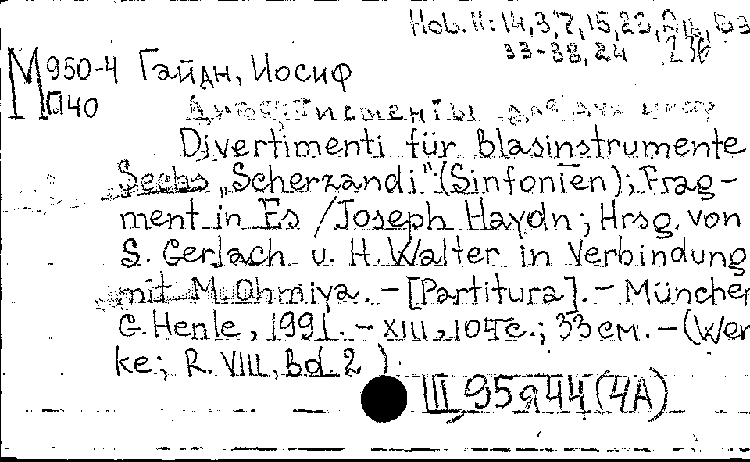 Hob. II: 14, 3, 7, 15, 23,
33-38, 24
М950-4 Гайдн, Иосиф
П40
Дивертисменты для дух инстр
Divertimenti für Blasinstrumente
Sechs „Scherzandi" (Sinfonien); Frag-
ment in Es / Joseph Haydn; Hrsg. von
S. Gerlach u. H. Walter in Verbindung
mit M. Ohmiya. - [Partitura]. - München
G. Henle, 1991. - XIII, 104 с.; 33 см. - (Wer
ke; R. VIII, Bd. 2).
III 95 я 44 (4А)